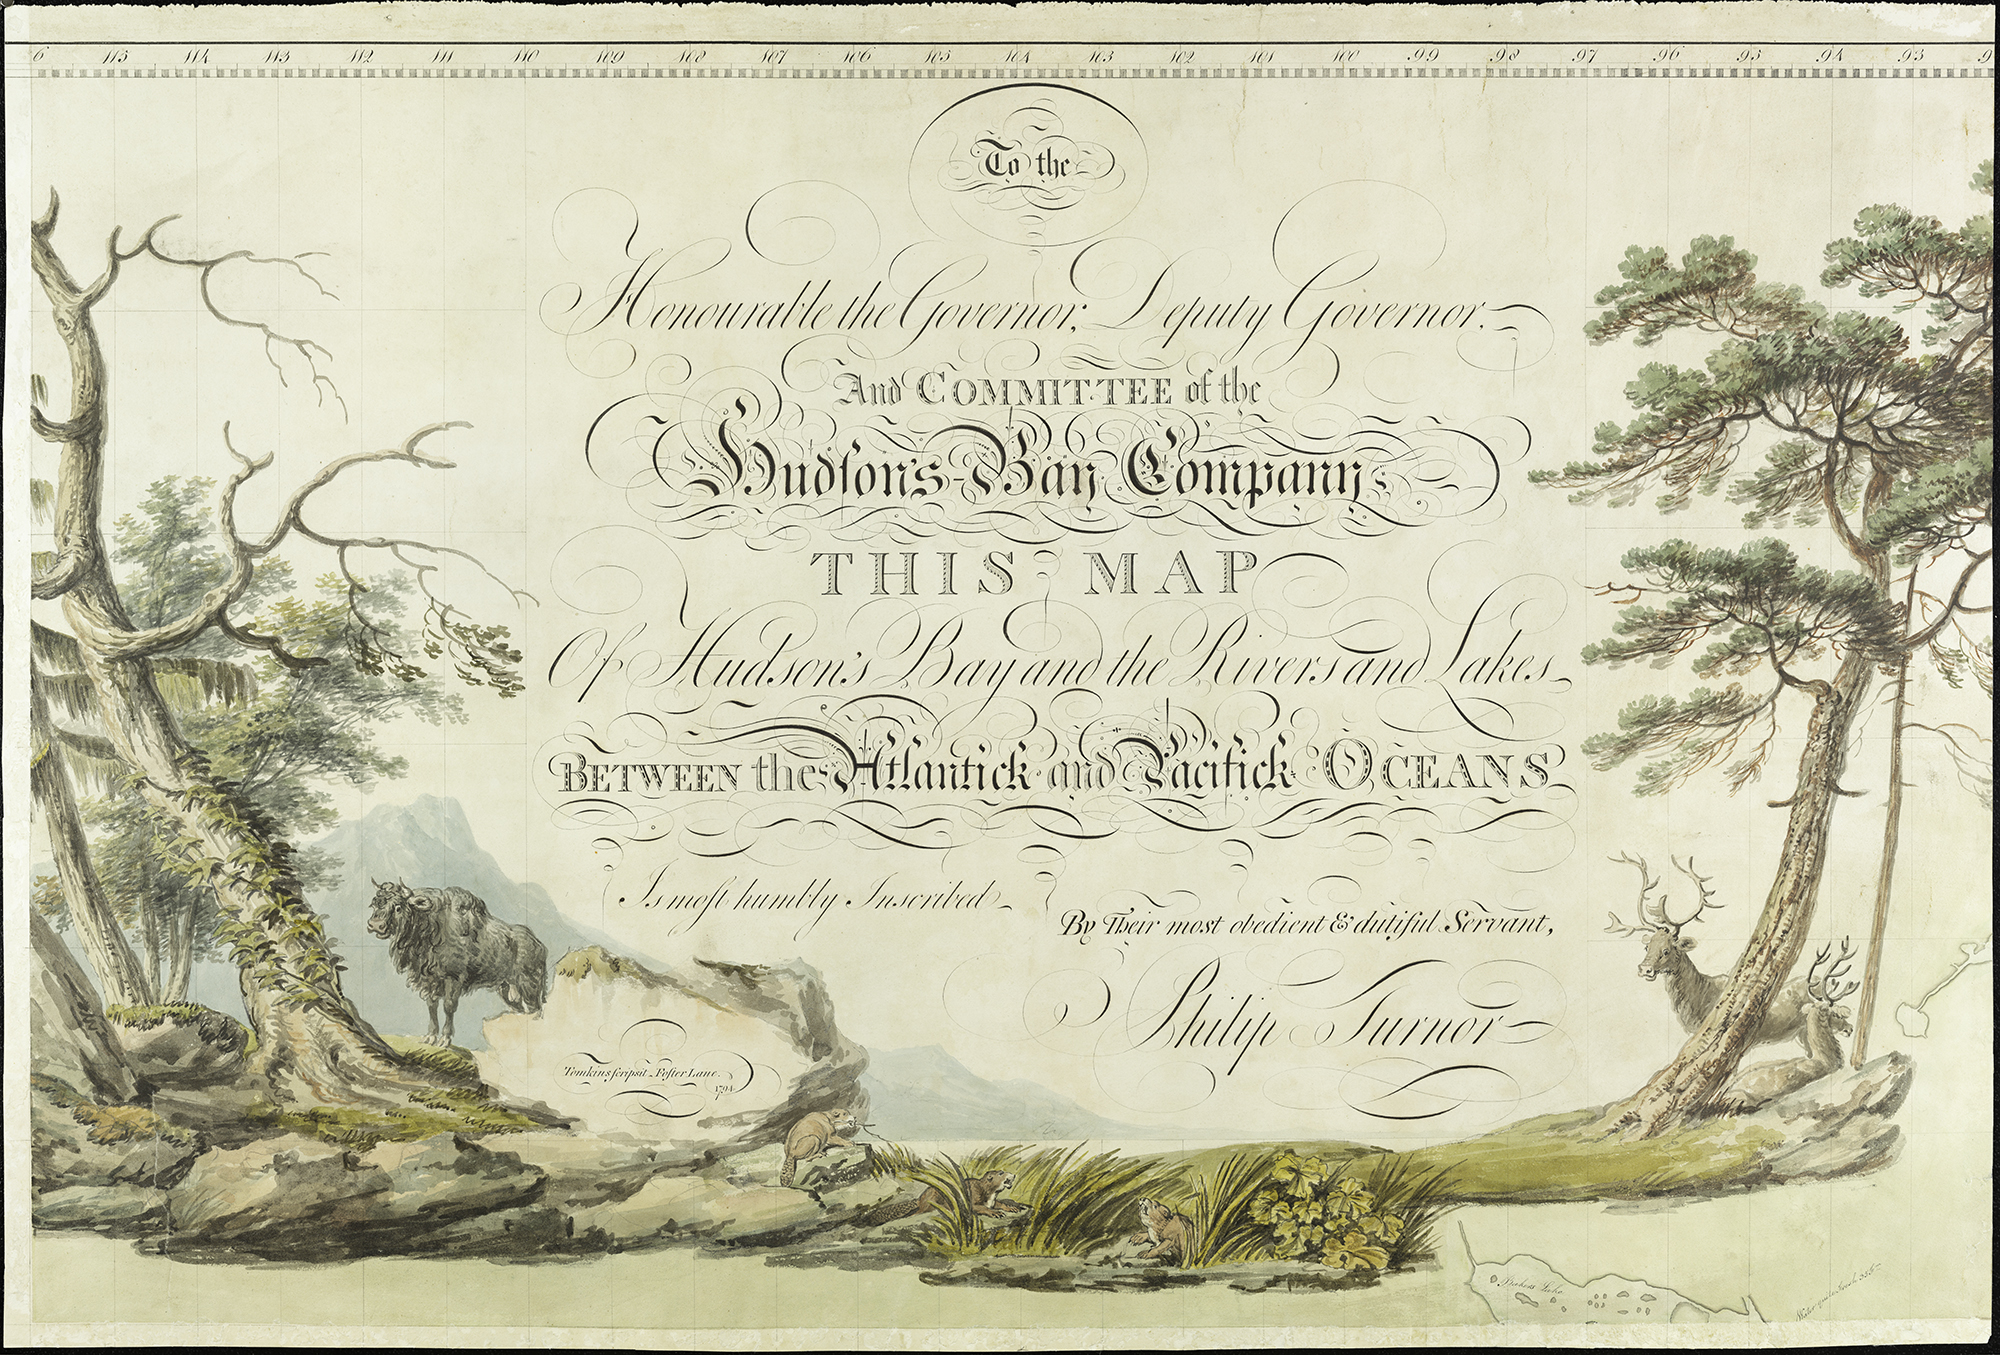 6 115 114 113 112 111 110 109 108 107 106 105 104 103 102 101 100 99 98 97 96 95 94 93 9
To the
Honourable the Governor, Deputy Governor,
And COMMITTEE of the
Hudson's-Bay Company
THIS MAP
Of Hudson's Bay and the Rivers and Lakes
BETWEEN the Atlantick and Pacifick OCEANS
Is most humbly Inscribed
By Their most obedient & dutiful Servant,
Philip Turnor
Tomkins scripsit Foster Lane.
1794
Lake
Water quite fresh